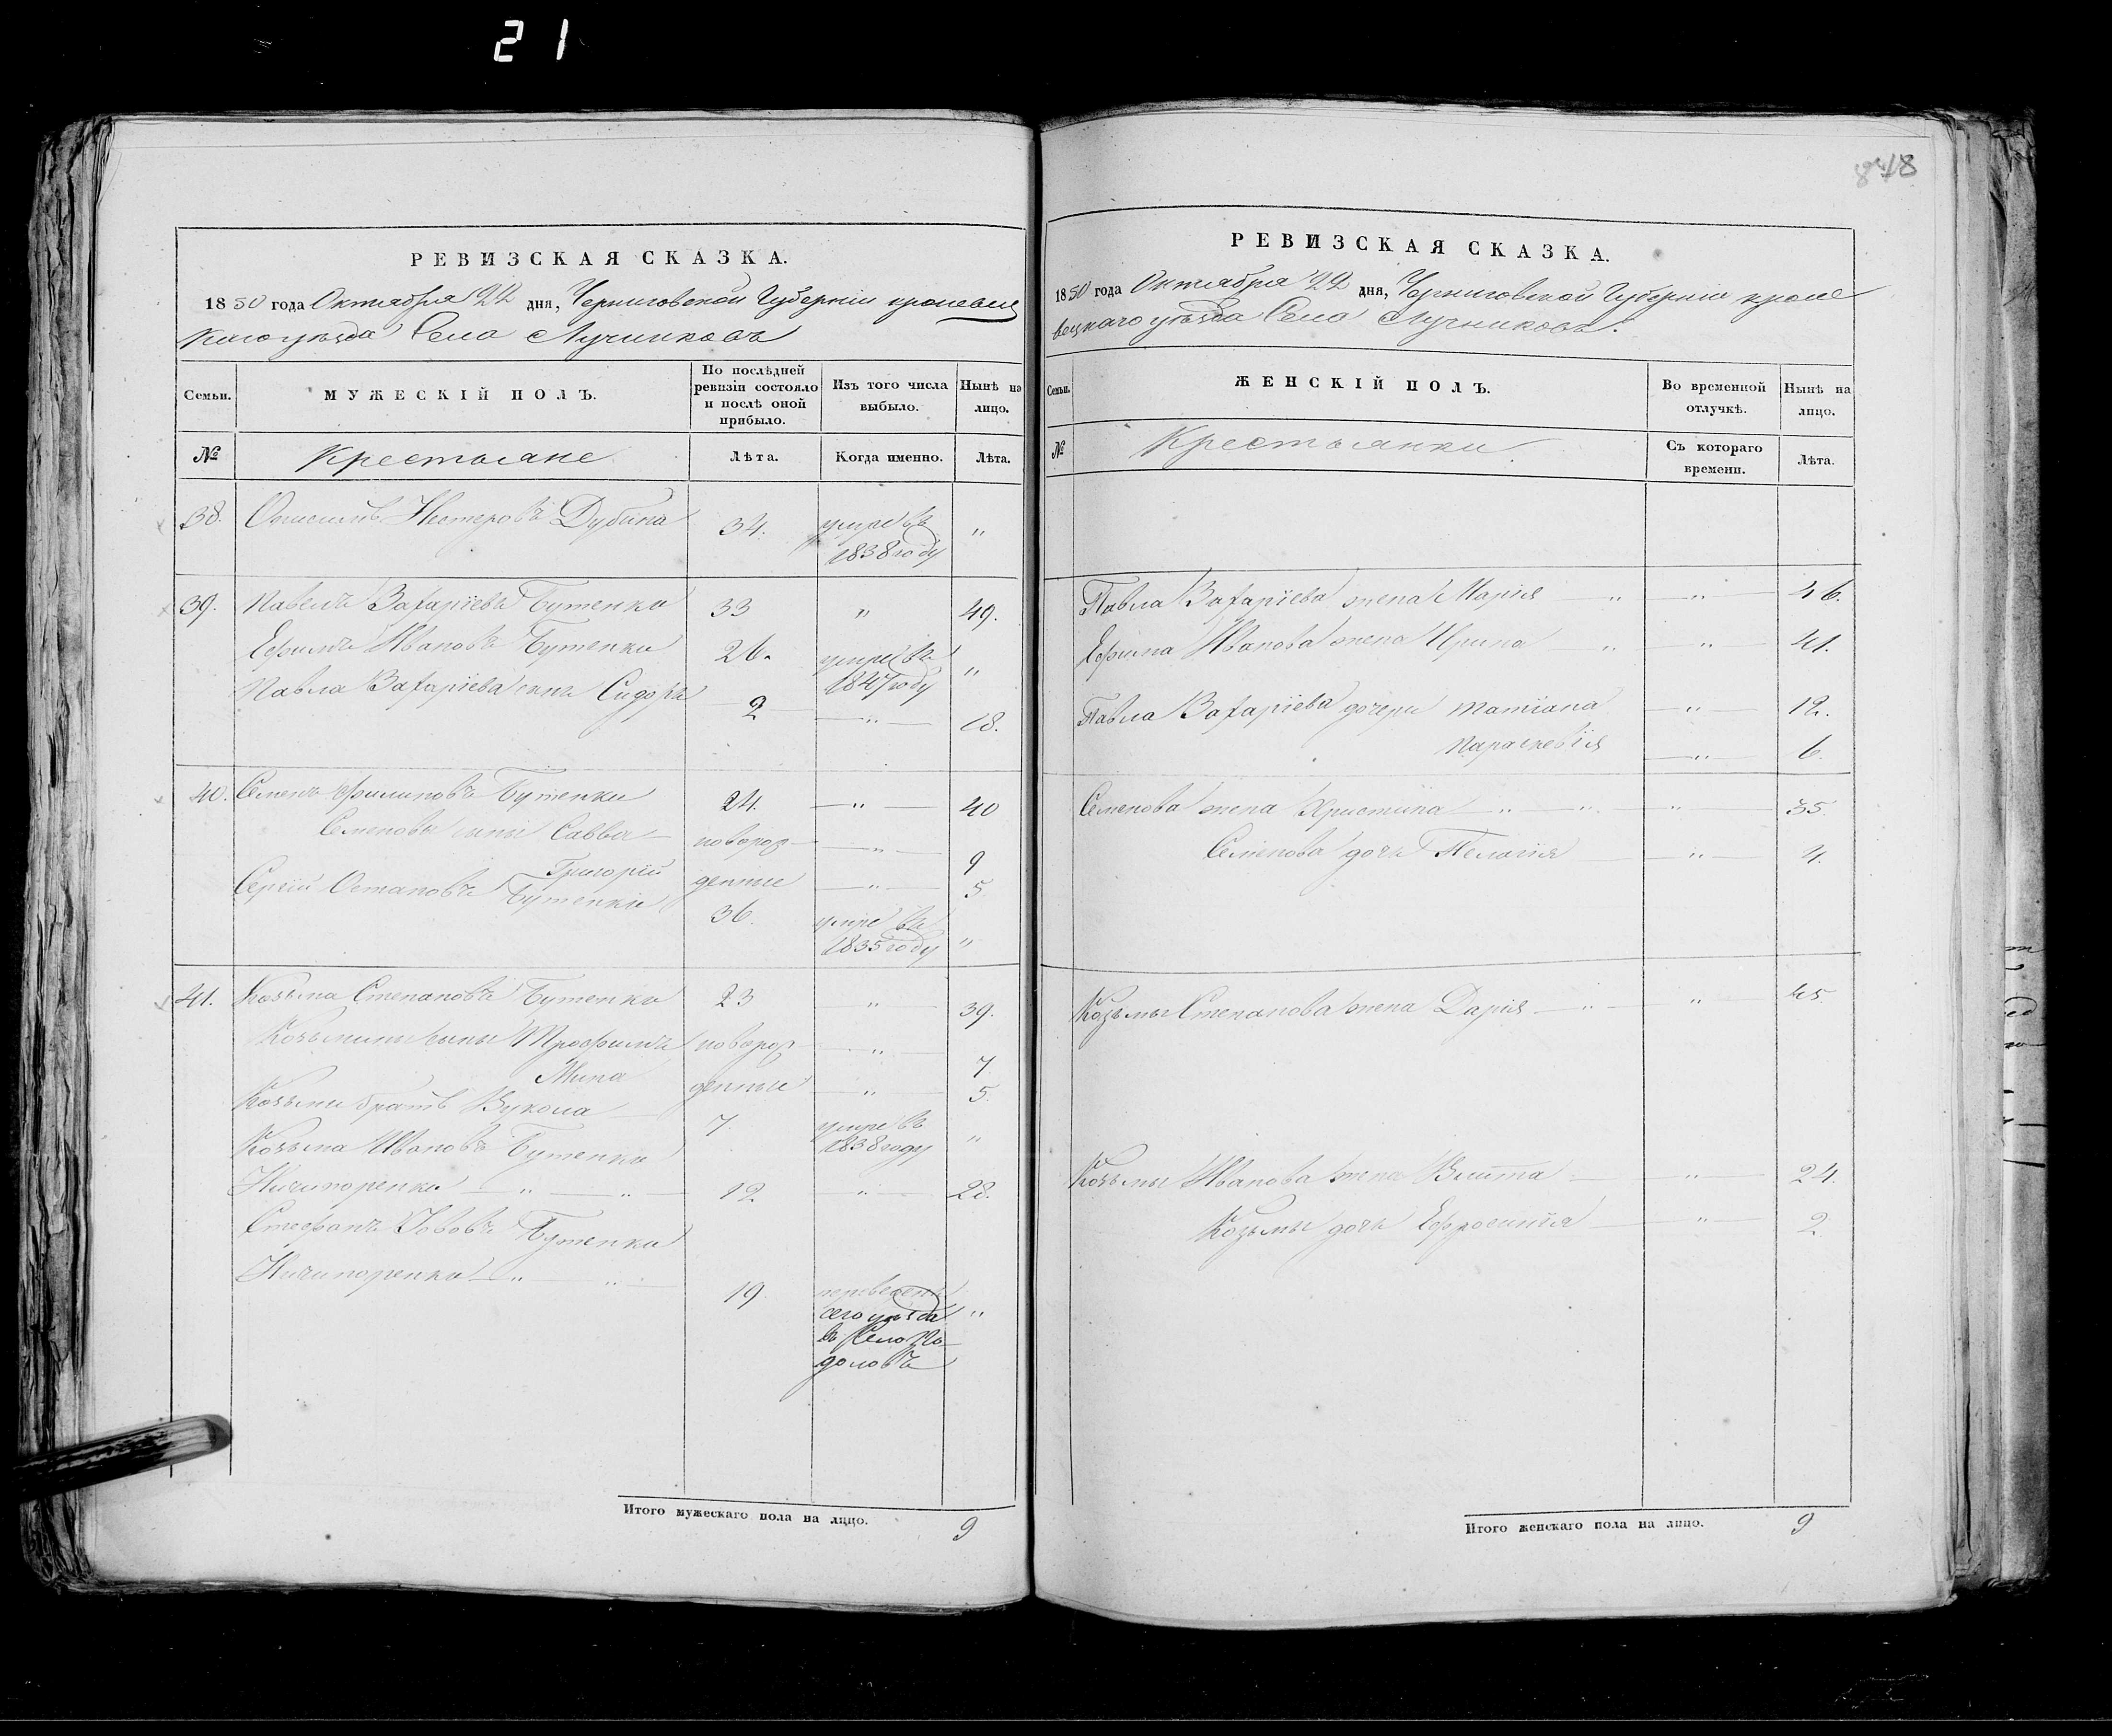 21
818
РЕВИЗСКАЯ СКАЗКА.
1850 года Октября 22 дня, Черниговской Губерніи кролевец
каго уѣзда Села Лучниковъ
Семьи.
МУЖЕСКІЙ ПОЛЪ.
По послѣдней ревизіи состояло и послѣ оной прибыло.
Изъ того числа выбыло.
Нынѣ на лицо.
№
Крестьяне
Лѣта.
Когда именно.
Лѣта.
38. Онисимъ Нестеровъ Дубина 34. умре въ 1838 году "
39. Павелъ Захаріевъ Бутенко 33 " 49.
Ефимъ Ивановъ Бутенко 26. умре въ 1847 году "
Павла Захаріева сынъ Сидоръ 2 " 18.
40. Семенъ Филиповъ Бутенко 24. " 40
Семеновы сыны Савва новорож " 9
Григорій денные " 5
Сергій Остаповъ Бутенко 36. умре въ 1835 году "
41. Козьма Степановъ Бутенко 23 " 39.
Козьмины сыны Трофимъ новорож " 7
Мина денные " 5.
Козьмы братъ Вукола 7. умре въ 1838 году "
Козьма Ивановъ Бутенко
Ничипоренко " " 12 " 28.
Стефанъ Іововъ Бутенко
Ничипоренко " " 19. переведенъ "
сего уѣзда
въ Село По-
доловъ
Итого мужескаго пола на лицо. 9
РЕВИЗСКАЯ СКАЗКА.
1850 года Октября 22 дня, Черниговской Губерніи кроле
вецкаго уѣзда Села Лучниковъ.
Семьи.
ЖЕНСКІЙ ПОЛЪ.
Во временной отлучкѣ.
Нынѣ на лицо.
№
Крестьянки.
Съ котораго времени.
Лѣта.
Павла Захаріева жена Марія " " 46.
Ефима Иванова жена Ирина " " 41.
Павла Захаріева дочери Татіана " 12.
Параскевія " 6.
Семенова жена Христина " " " 35.
Семенова дочь Пелагія " 4.
Козьмы Степанова жена Дарія " " 45.
Козьмы Иванова жена " 24.
Козьмы дочь Ефросинія " 2.
Итого женскаго пола на лицо. 9